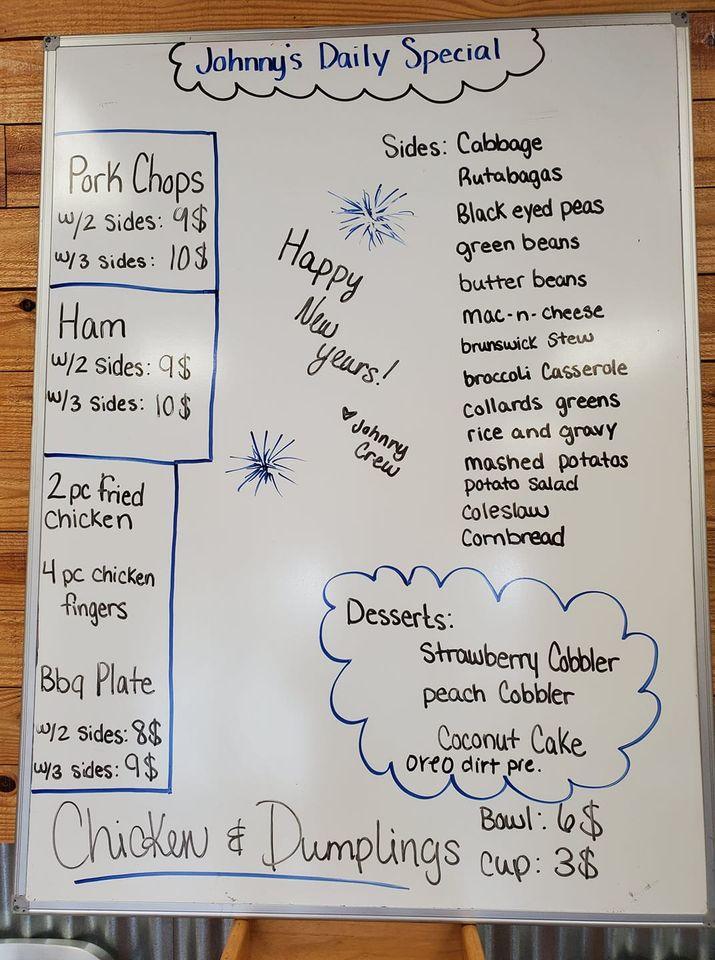 Johnny's Daily Special
Pork Chops
w/2 sides: 9$
w/3 sides: 10$
Ham
w/2 sides: 9$
w/3 sides: 10$
2 pc fried
chicken
4 pc chicken
fingers
Bbq Plate
w/2 sides: 8$
w/3 sides: 9$
Happy
New
years!
♥ Johnny
Crew
Sides: Cabbage
Rutabagas
Black eyed peas
green beans
butter beans
mac-n-cheese
brunswick Stew
broccoli Casserole
collards greens
rice and gravy
mashed potatos
potato salad
coleslaw
Cornbread
Desserts:
Strawberry Cobbler
peach Cobbler
Coconut Cake
oreo dirt pre.
Chicken & Dumplings
Bowl: 6$
Cup: 3$